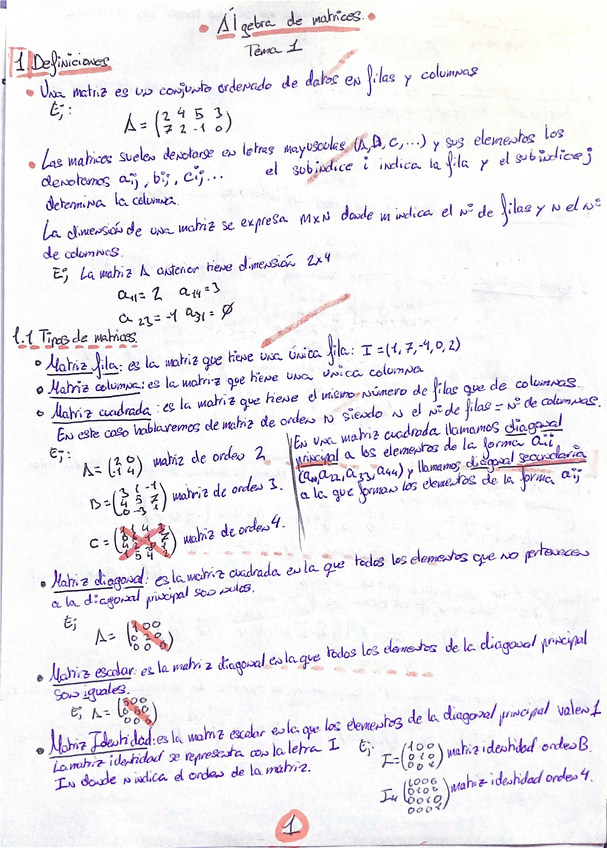 Álgebra de matrices.
Tema 1
1. Definiciones
• Una matriz es un conjunto ordenado de datos en filas y columnas
Ej:
A = (2 4 5 3
7 2 -1 0)
• Las matrices suelen denotarse en letras mayusculas (A, B, C, ...) y sus elementos los
denotemos aij, bij, cij, ... el subíndice i indica la fila y el subíndice j
determina la columna.
La dimensión de una matriz se expresa mxn donde m indica el nº de filas y n el nº
de columnas.
Ej La matriz A anterior tiene dimensión 2x4
a11 = 2 a14 = 3
a23 = -1 a31 = ∅
1.1 Tipos de matrices.
• Matriz fila: es la matriz que tiene una única fila: I = (1, 7, -4, 0, 2)
• Matriz columna: es la matriz que tiene una única columna
• Matriz cuadrada: es la matriz que tiene el mismo número de filas que de columnas.
En este caso hablaremos de matriz de orden N siendo N el nº de filas = nº de columnas.
Ej:
A = (2 0
-1 4) matriz de orden 2
B = (3 1 -1
4 5 7
0 -3 ) matriz de orden 3.
C = matriz de orden 4.
En una matriz cuadrada llamamos diagonal
principal a los elementos de la forma aii
(a11, a22, a33, a44) y llamamos diagonal secundaria
a la que forman los elementos de la forma aij
• Matriz diagonal: es la matriz cuadrada en la que todos los elementos que no pertenecen
a la diagonal principal son nulos.
Ej
A = (1 0 0
0 2 0
0 0 0)
• Matriz escalar: es la matriz diagonal en la que todos los elementos de la diagonal principal
son iguales.
Ej A =
• Matriz Identidad: es la matriz escalar en la que los elementos de la diagonal principal valen 1
La matriz identidad se representa con la letra I
In donde n indica el orden de la matriz.
Ej:
I = (1 0 0
0 1 0
0 0 1) matriz identidad orden 3.
I4 (1 0 0 0
0 1 0 0
0 0 1 0
0 0 0 1) matriz identidad orden 4.
1